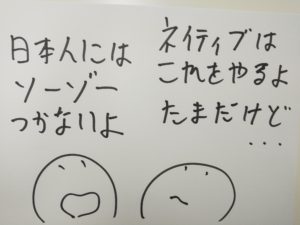 日本人には
ソーゾー
つかないよ
ネイティブは
これをやるよ
たまだけど
...